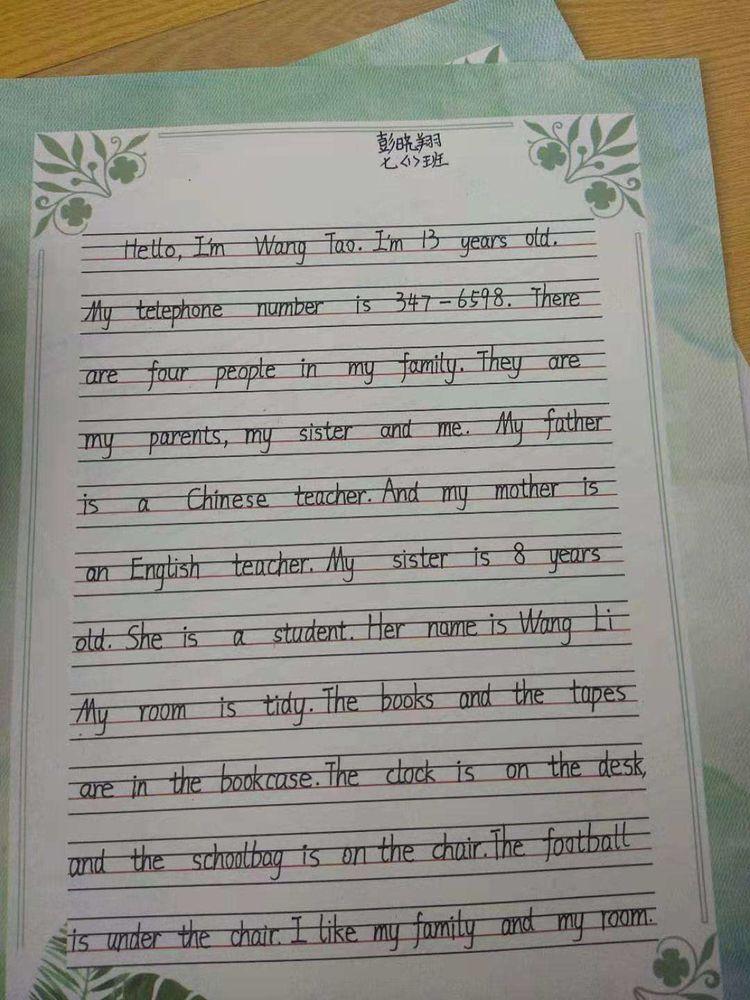 彭晓翔
七<1>班
Hello, I'm Wang Tao. I'm 13 years old.
My telephone number is 347-6598. There
are four people in my family. They are
my parents, my sister and me. My father
is a Chinese teacher. And my mother is
an English teacher. My sister is 8 years
old. She is a student. Her name is Wang Li
My room is tidy. The books and the tapes
are in the bookcase. The clock is on the desk,
and the schoolbag is on the chair. The football
is under the chair. I like my family and my room.